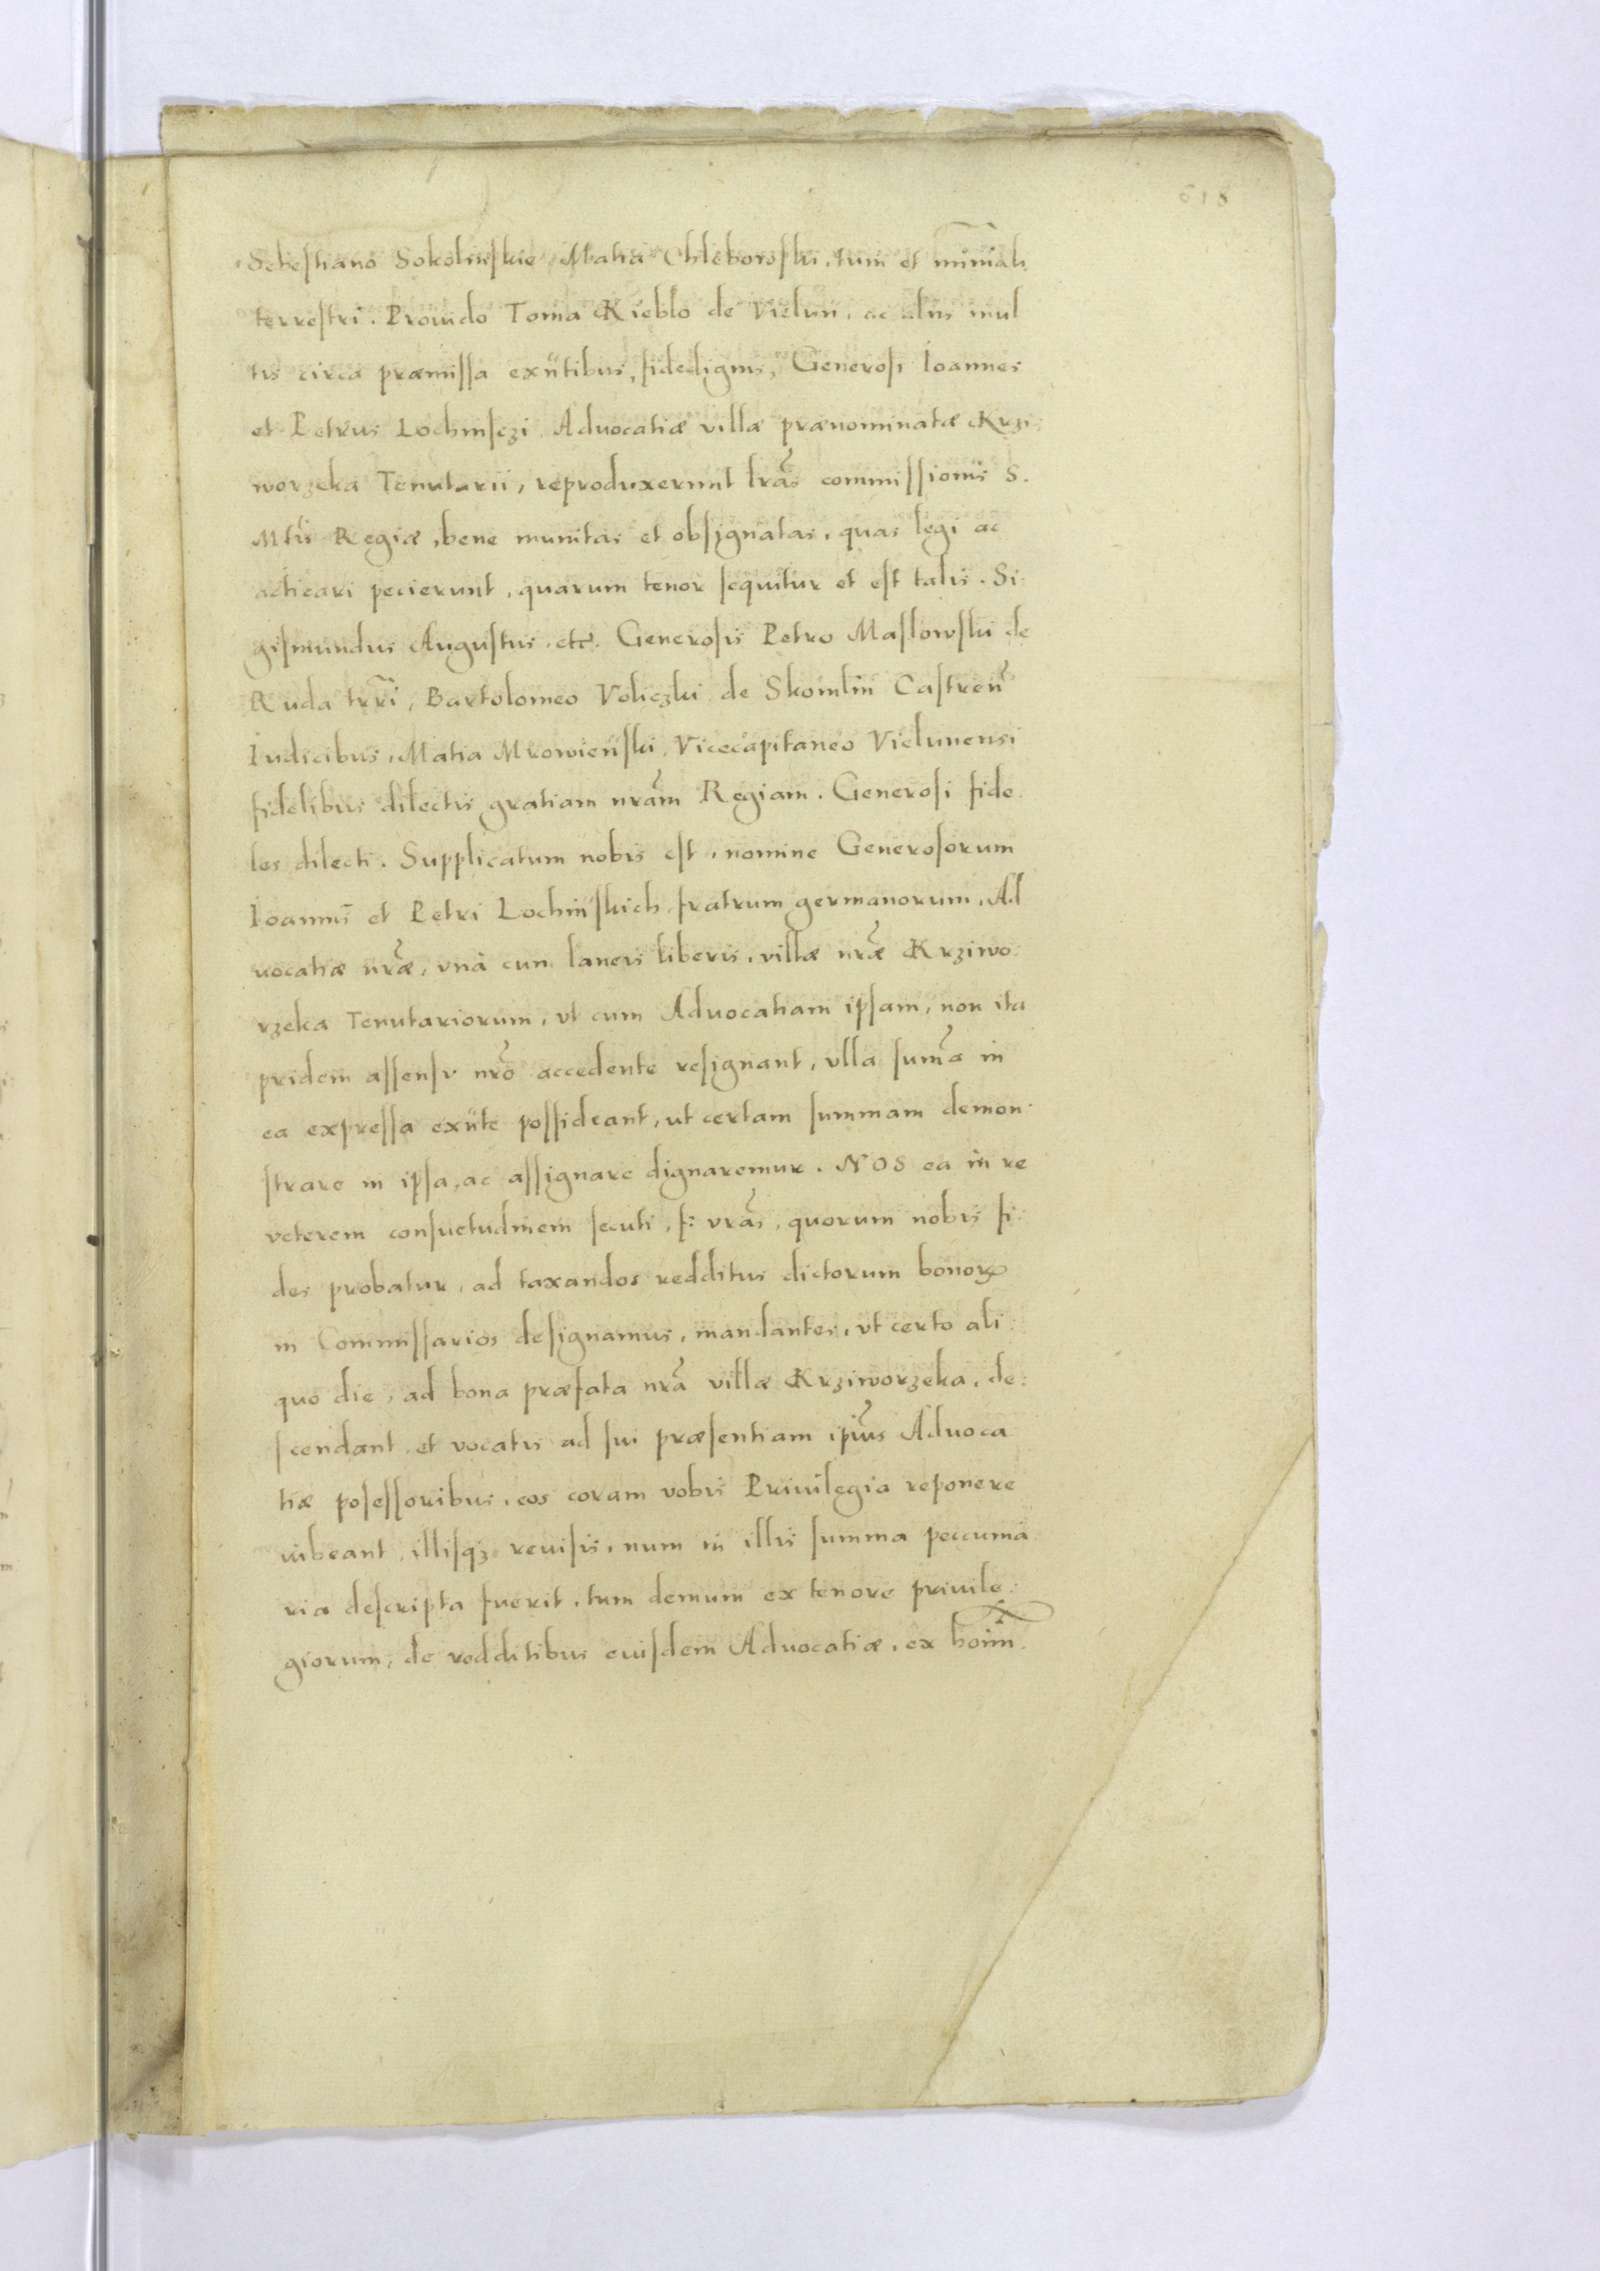 618
Sebestiano Sokolinskie, Matia Chlebowski, tum et miniali
terrestri. Prouido Toma Kieblo de Vielun, ac aliis mul
tis circa præmissa exntibus, fidedignis, Generosi Ioannes
et Petrus Lochinsczi Aduocatiæ villæ prænominatæ Krzi:
worzeka Tenutarii, reproduxerunt lras commissionis S.
Mtis Regiæ, bene munitas et obsignatas, quas legi ac
acticari pecierunt, quarum tenor sequitur et est talis. Si:
gismundus Augustus. etc. Generosis Petro Maslowski de
Ruda trri, Bartolomeo Voliczki de Skomlin Castren
Iudicibus, Matia Mrowienski, Vicecapitaneo Vielunensi
fidelibus dilectis gratiam nram Regiam. Generosi fide
les dilecti. Supplicatum nobis est, nomine Generosorum
Ioannis et Petri Lochinskich fratrum germanorum, Ad
uocatiæ nræ, vnà cum laneis liberis, villæ nræ Krziwo:
rzeka Tenutariorum, vt cum Aduocatiam ipsam, non ita
pridem assensv nro accedente resignant, vlla suma in
ea expressa exnte possideant, ut certam summam demon:
strare in ipsa, ac assignare dignaremur. NOS ea in re
veterem consuetudinem secuti, f: vras, quorum nobis fi:
des probatur, ad taxandos redditus dictorum bonor
in Commissarios designamus, mandantes, vt certo ali
quo die, ad bona præfata nra villæ Krziworzeka, de:
scendant, et vocatis ad sui præsentiam ipius Aduoca
tiæ posessoribus, eos coram vobis Priuilegia reponere
iubeant, illisqz reuisis, num in illis summa peccunia
ria descripta fuerit, tum demum ex tenore priuile:
giorum, de redditibus eiusdem Aduocatiæ, ex hoim